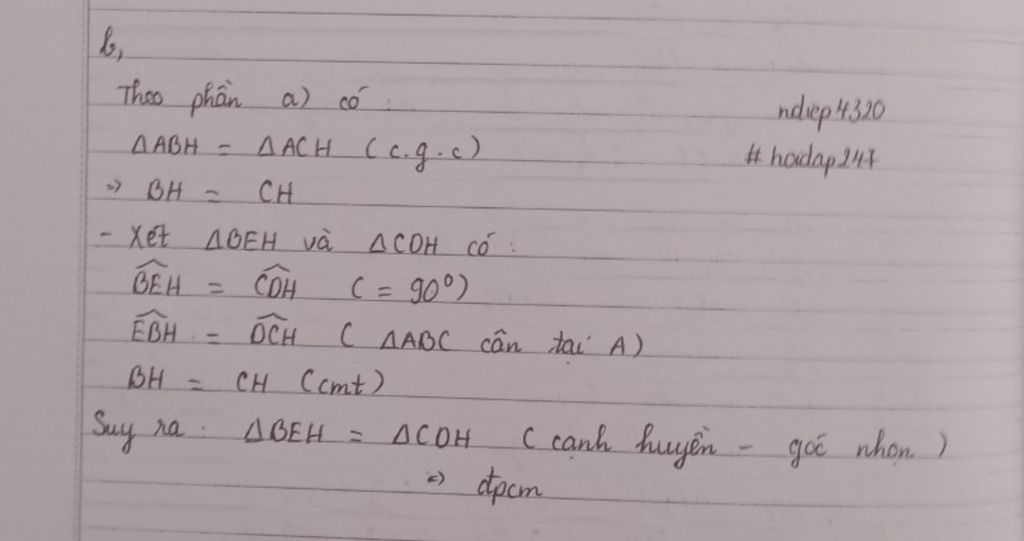 b,
Theo phần a) có :
ndiep4320
ΔABH = ΔACH (c.g.c)
# hoidap247
=> BH = CH
- Xét ΔBEH và ΔCDH có :
\widehat{BEH} = \widehat{CDH} ( = 90°)
\widehat{EBH} = \widehat{DCH} ( ΔABC cân tại A)
BH = CH (cmt)
Suy ra : ΔBEH = ΔCDH ( cạnh huyền - góc nhọn )
=> đpcm